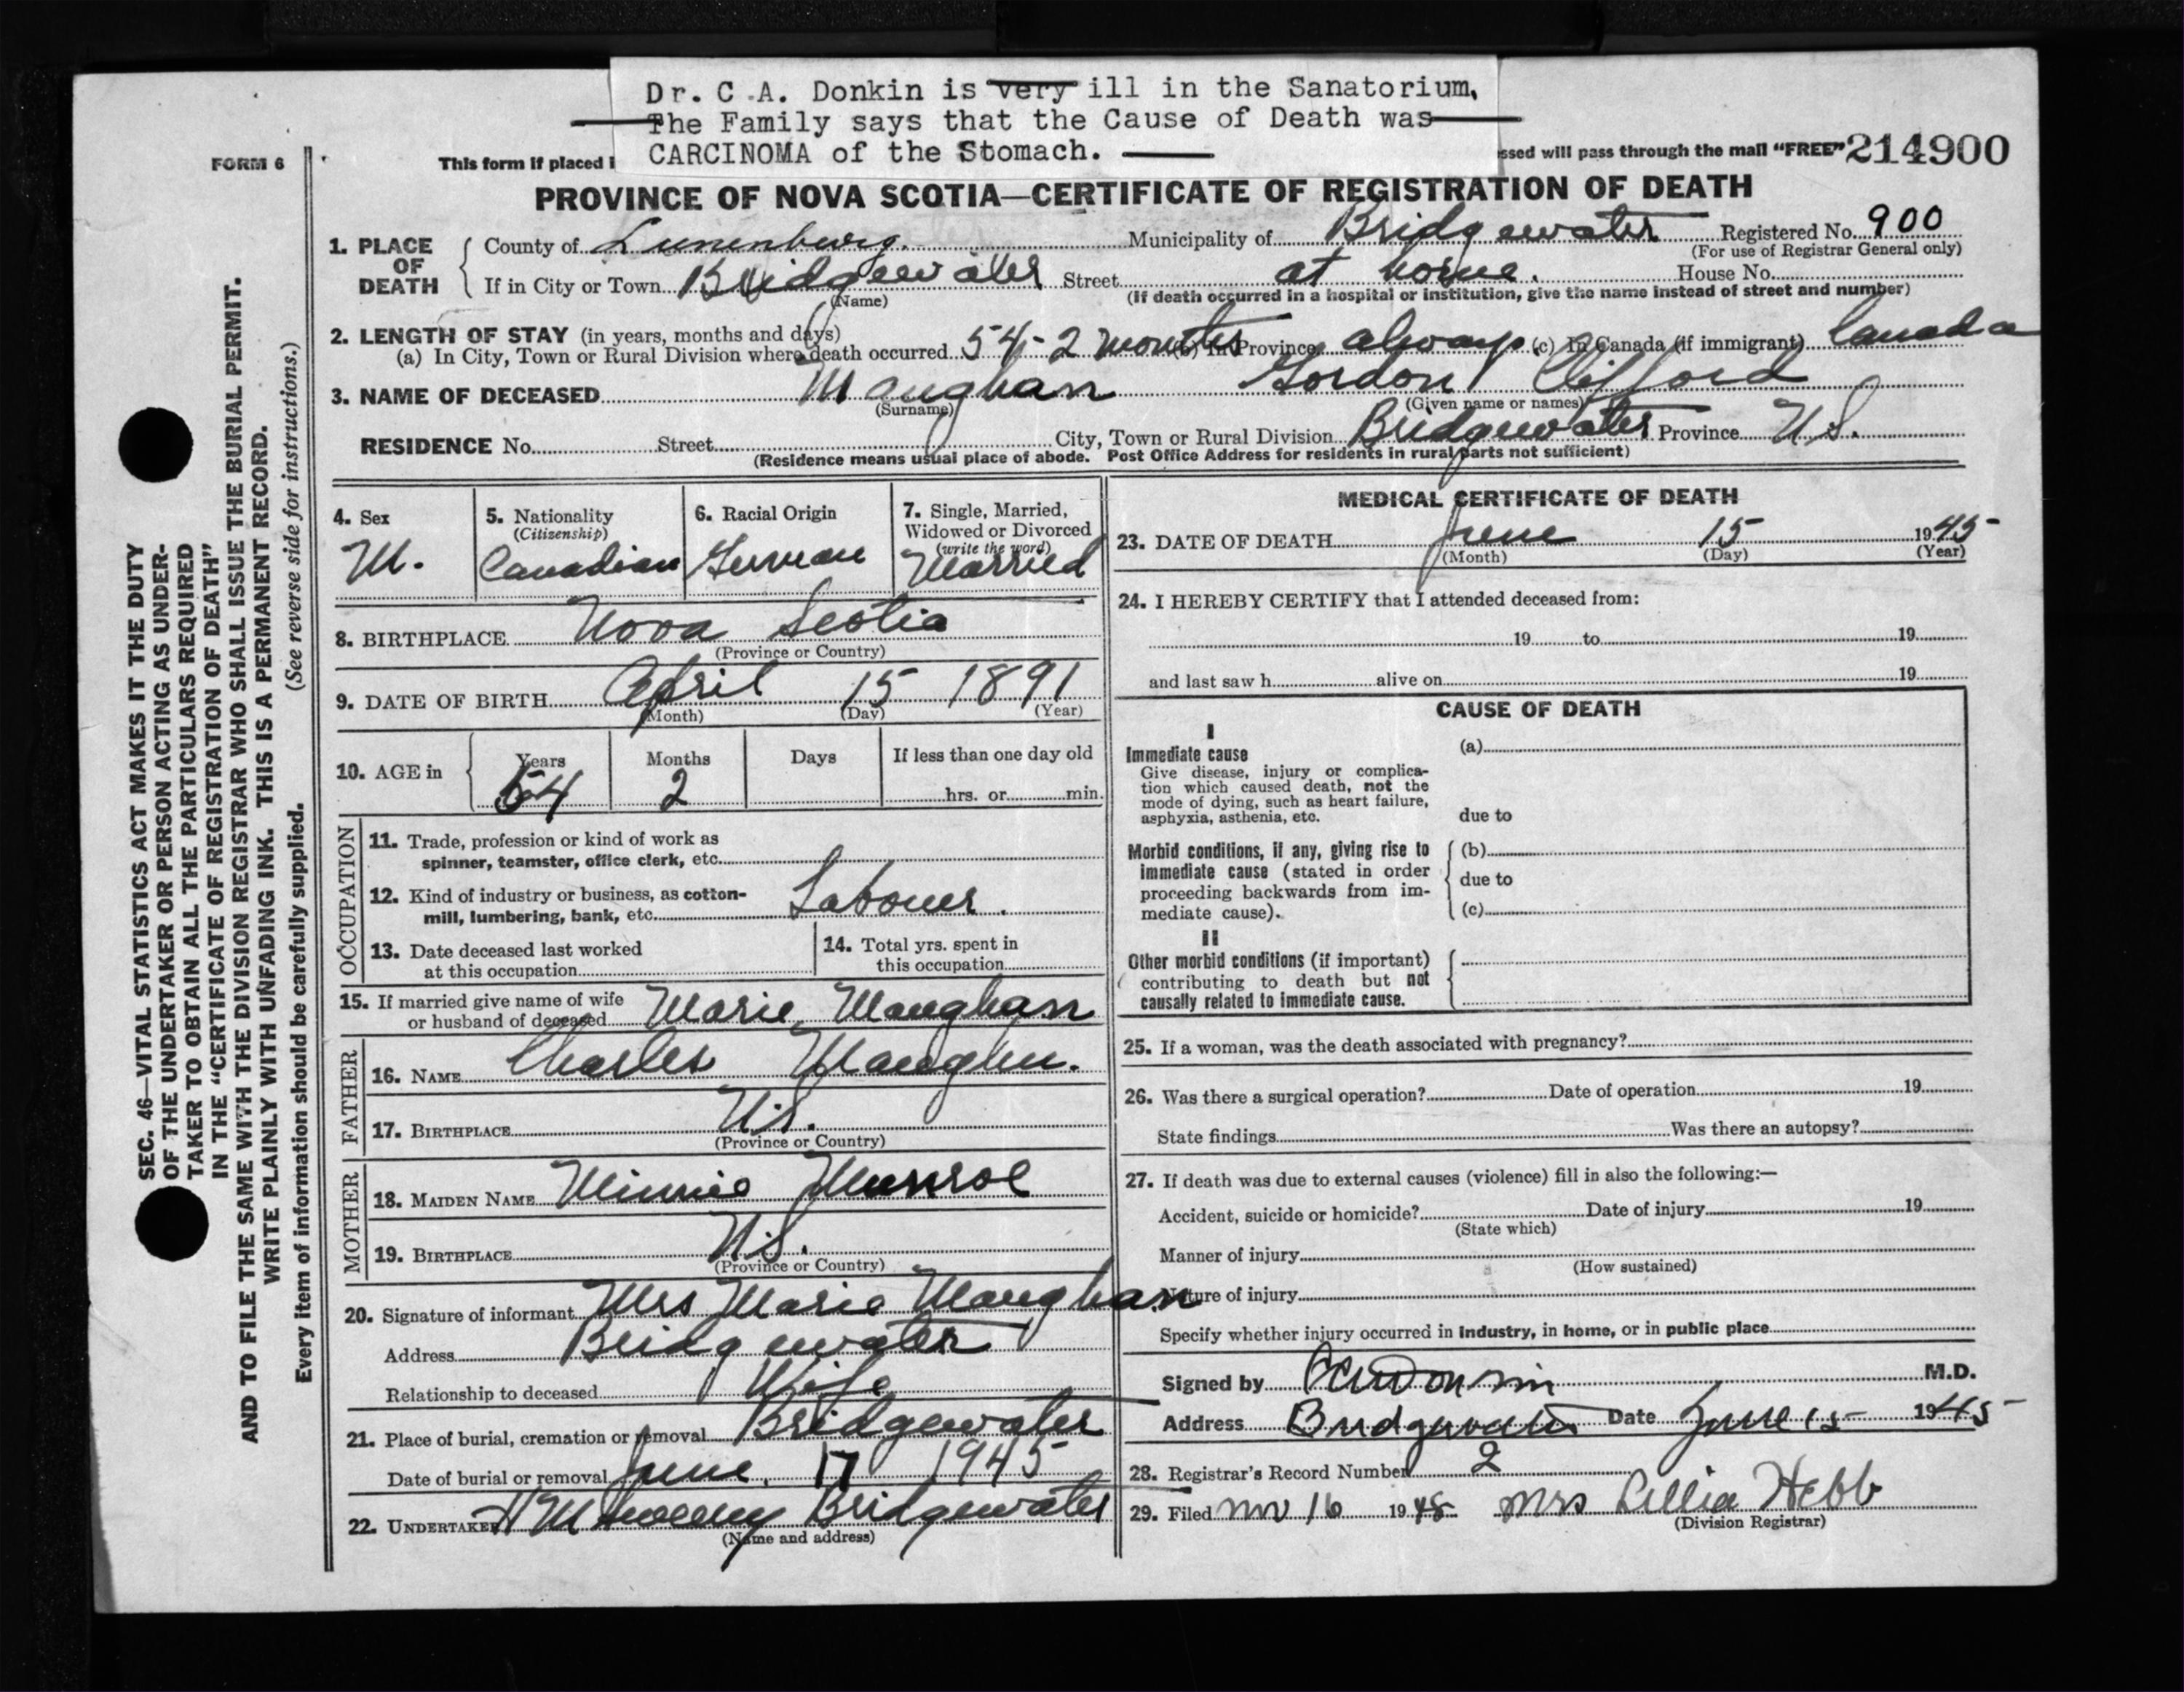 Dr. C.A. Donkin is very ill in the Sanatorium,
The Family says that the Cause of Death was
CARCINOMA of the Stomach.
FORM 6
This form if placed i
ssed will pass through the mail "FREE" 214900
PROVINCE OF NOVA SCOTIA—CERTIFICATE OF REGISTRATION OF DEATH
1. PLACE OF DEATH
County of Lunenburg. Municipality of Bridgewater Registered No. 900
(For use of Registrar General only)
If in City or Town Bridgewater Street at home. House No.
(Name) (If death occurred in a hospital or institution, give the name instead of street and number)
2. LENGTH OF STAY (in years, months and days)
(a) In City, Town or Rural Division where death occurred 54-2 months (b) In Province always (c) In Canada (if immigrant) Canada
3. NAME OF DECEASED Maughan Gordon Clifford
(Surname) (Given name or names)
RESIDENCE No. Street City, Town or Rural Division Bridgewater Province N.S.
(Residence means usual place of abode. Post Office Address for residents in rural parts not sufficient)
4. Sex
M.
5. Nationality
(Citizenship)
Canadian
6. Racial Origin
German
7. Single, Married,
Widowed or Divorced
(write the word)
Married
8. BIRTHPLACE Nova Scotia
(Province or Country)
9. DATE OF BIRTH April 15 1891
(Month) (Day) (Year)
10. AGE in
Years Months Days If less than one day old
54 2 hrs. or min.
OCCUPATION
11. Trade, profession or kind of work as
spinner, teamster, office clerk, etc.
12. Kind of industry or business, as cotton-
mill, lumbering, bank, etc. Labouer.
13. Date deceased last worked
at this occupation
14. Total yrs. spent in
this occupation
15. If married give name of wife
or husband of deceased Marie Maughan
FATHER
16. NAME Charles Maughn.
17. BIRTHPLACE N.S.
(Province or Country)
MOTHER
18. MAIDEN NAME Minnie Munroe
19. BIRTHPLACE N.S.
(Province or Country)
20. Signature of informant Mrs Marie Maughan
Address Bridgewater
Relationship to deceased Wife
21. Place of burial, cremation or removal Bridgewater
Date of burial or removal June, 17 1945
22. UNDERTAKER Bridgewater
(Name and address)
MEDICAL CERTIFICATE OF DEATH
23. DATE OF DEATH June 15 1945
(Month) (Day) (Year)
24. I HEREBY CERTIFY that I attended deceased from:
19 to 19
and last saw h alive on 19
CAUSE OF DEATH
I
Immediate cause
Give disease, injury or complica-
tion which caused death, not the
mode of dying, such as heart failure,
asphyxia, asthenia, etc.
(a)
due to
Morbid conditions, if any, giving rise to
immediate cause (stated in order
proceeding backwards from im-
mediate cause).
(b)
due to
(c)
II
Other morbid conditions (if important)
contributing to death but not
causally related to immediate cause.
25. If a woman, was the death associated with pregnancy?
26. Was there a surgical operation? Date of operation 19
State findings Was there an autopsy?
27. If death was due to external causes (violence) fill in also the following:—
Accident, suicide or homicide? Date of injury 19
(State which)
Manner of injury
(How sustained)
Nature of injury
Specify whether injury occurred in industry, in home, or in public place
Signed by CADonkin M.D.
Address Bridgewater Date June 15 1945
28. Registrar's Record Number 2
29. Filed Nov 16 1948 Mrs Lellia Hebb
(Division Registrar)
SEC. 46—VITAL STATISTICS ACT MAKES IT THE DUTY
OF THE UNDERTAKER OR PERSON ACTING AS UNDER-
TAKER TO OBTAIN ALL THE PARTICULARS REQUIRED
IN THE "CERTIFICATE OF REGISTRATION OF DEATH"
AND TO FILE THE SAME WITH THE DIVISION REGISTRAR WHO SHALL ISSUE THE BURIAL PERMIT.
WRITE PLAINLY WITH UNFADING INK. THIS IS A PERMANENT RECORD.
Every item of information should be carefully supplied. (See reverse side for instructions.)